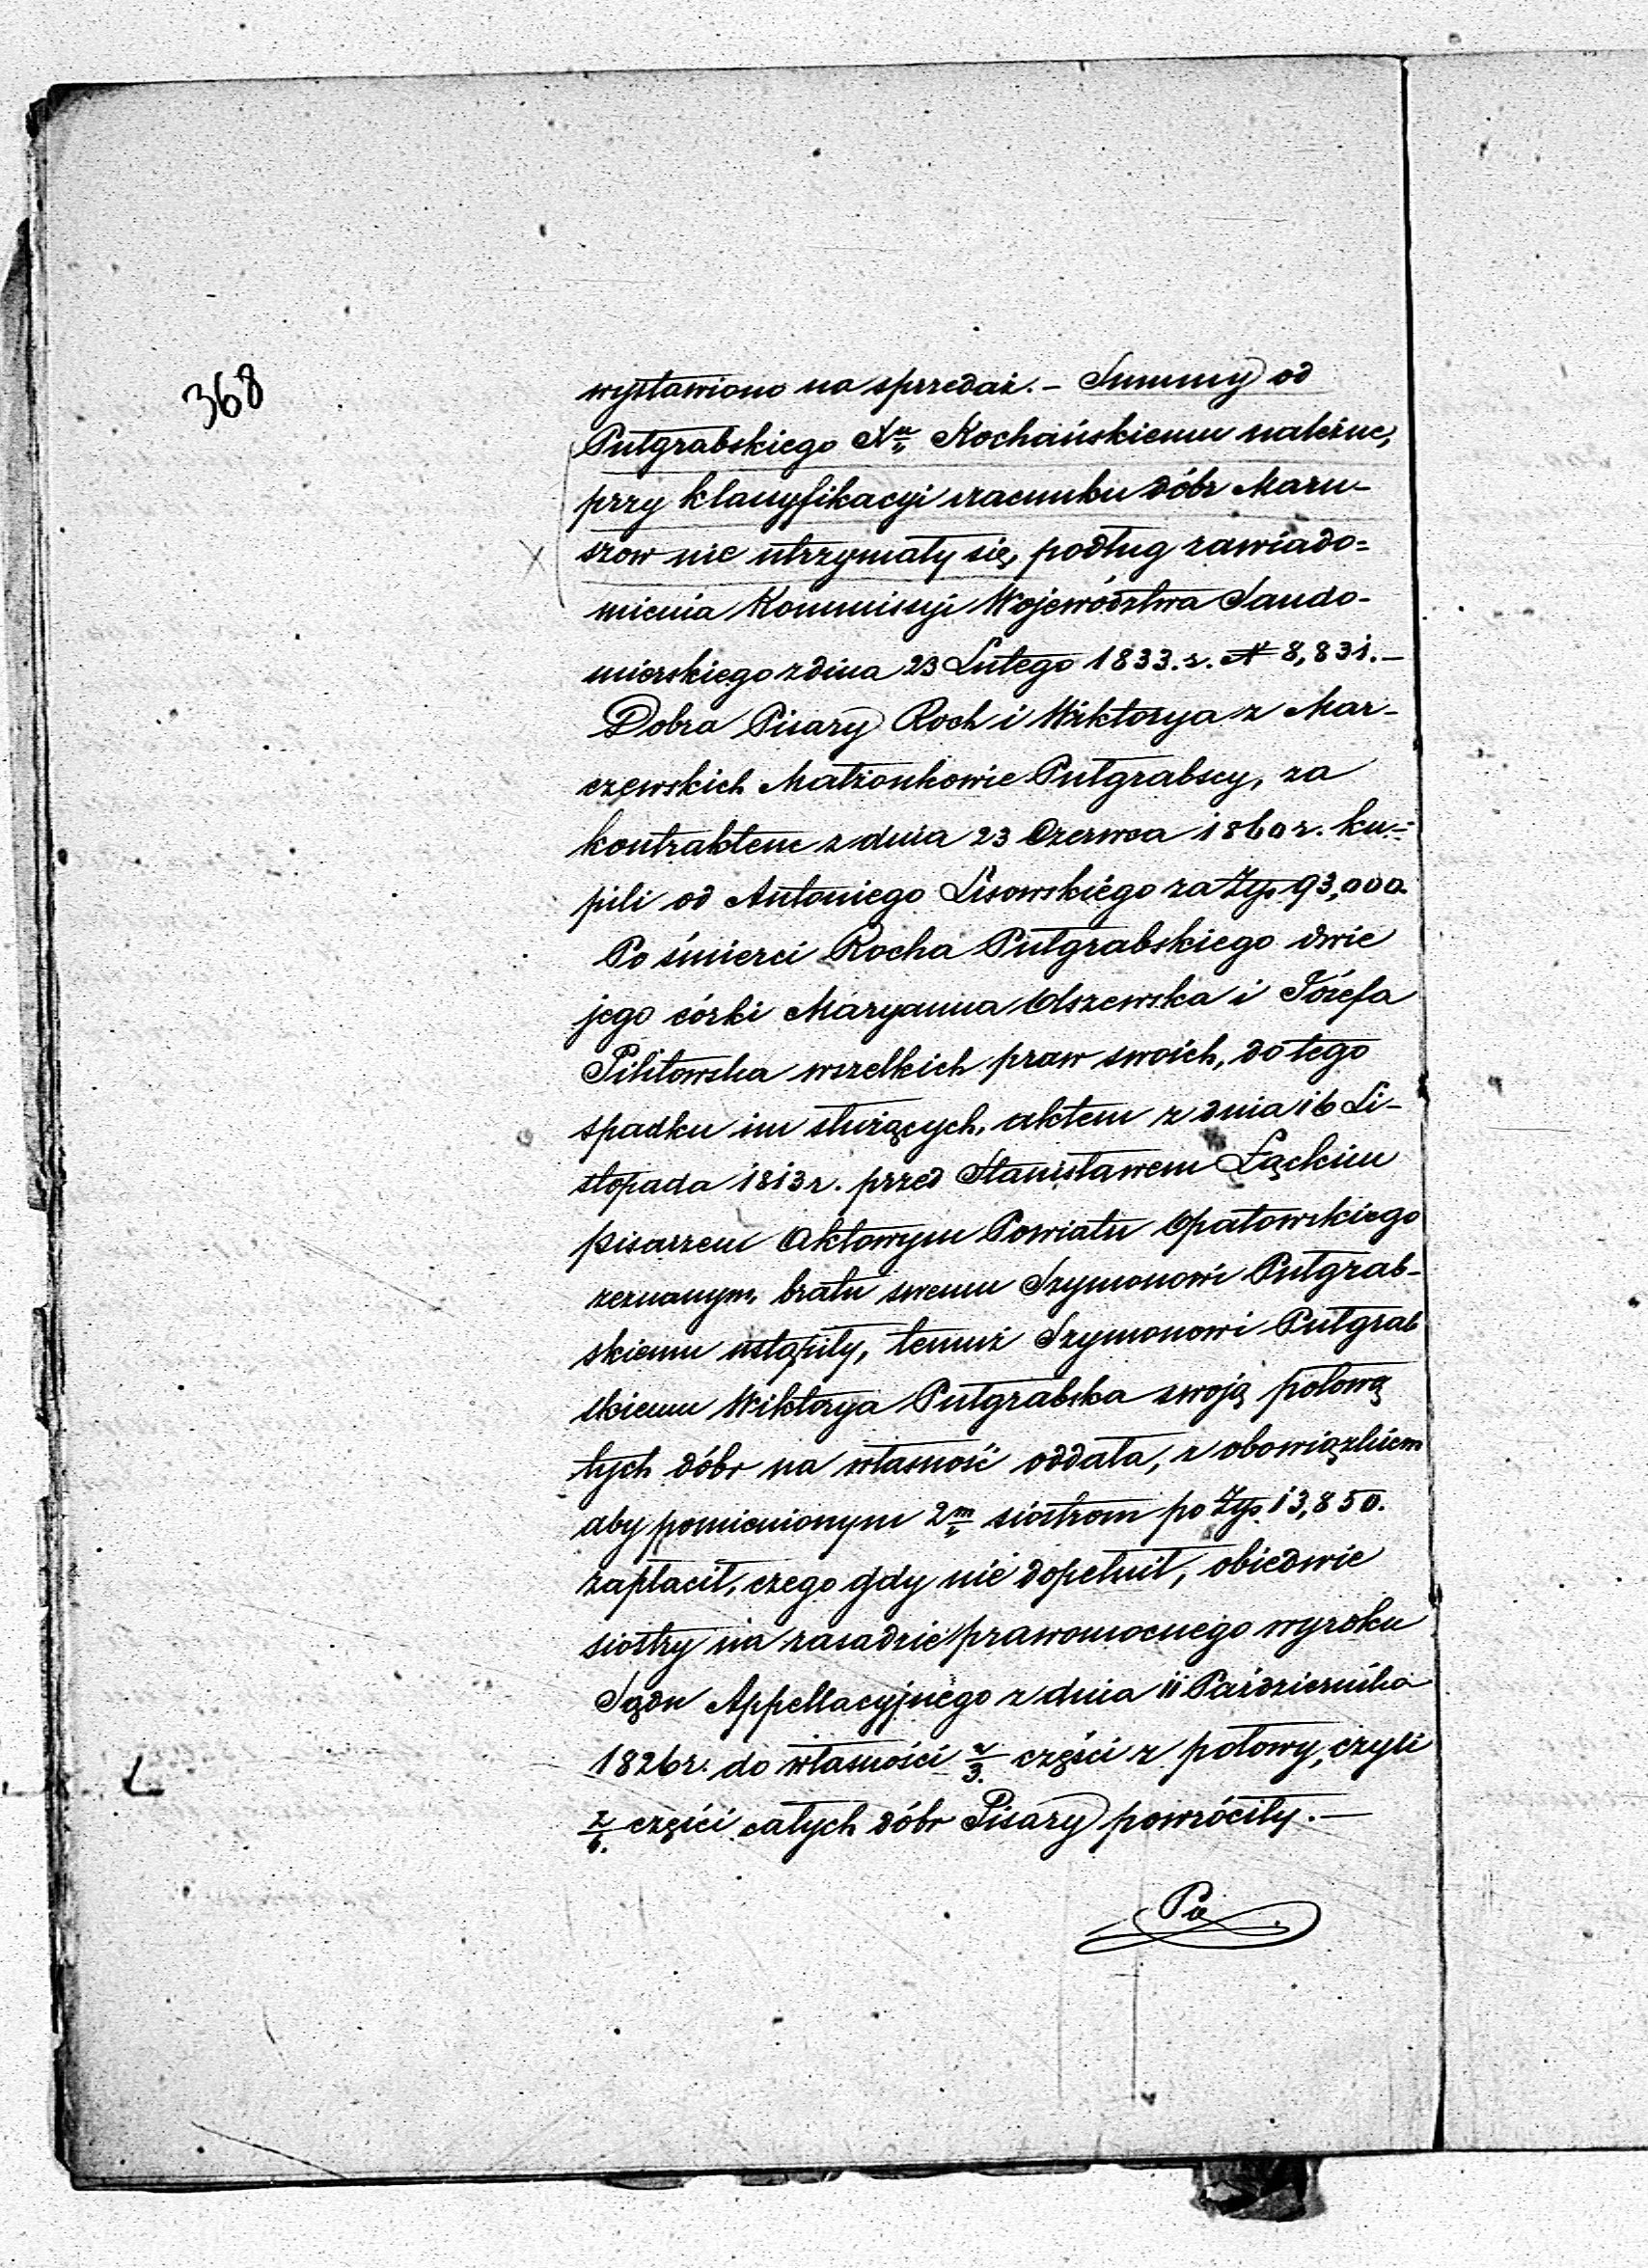 368
wystawiono na sprzedaż. – Summy od
Putgrabskiego Kochańskiemu należne,
przy klassyfikacyi szacunku dóbr Maru-
szow nie utrzymały się, podług zawiado=
mienia Kommissyi Województwa Sando-
mierskiego z dnia 23 Lutego 1833. r. N 8,831. –
Dobra Pisary Roch i Wiktorya z Mar-
czewskich Małżonkowie Putgrabscy, za
kontraktem z dnia 23 Czerwca 1860 r. ku=
pili od Antoniego Lisowskiego za Złp. 93,000.
Po śmierci Rocha Putgrabskiego dwie
jego córki Maryanna Olszewska i Józefa
Pilitowska wszelkich praw swoich, do tego
spadku im służących, aktem z dnia 16 Li-
stopada 1813 r. przed Stanisławem Łąckim
pisarzem Aktowym Powiatu Opatowskiego
zeznanym, bratu swemu Szymonowi Putgrab-
skiemu ustąpiły, temuż Szymonowi Putgrab
skiemu Wiktorya Putgrabska swoją połową
tych dóbr na własność oddała, z obowiązkiem
aby pomienionym 2m siostrom po Złp. 13,850.
zapłacił, czego gdy nie dopełnił, obiedwie
siostry na zasadzie prawomocnego wyroku
Sądu Appellacyjnego z dnia 11 Października
1826 r. do własności 2/3. części z połowy, czyli
2/6. części całych dóbr Pisary powróciły. —